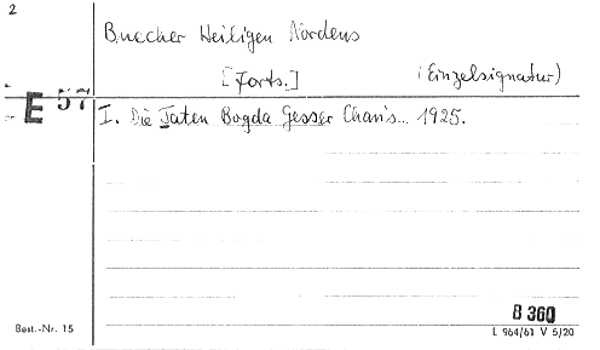 2
Buecher Heiligen Nordens
[Forts.] (Einzelsignatur)
E 57
I. Die Taten Bogda Gesser Chan's... 1925.
B 360
Best.-Nr. 15
L 964/61 V 5/20